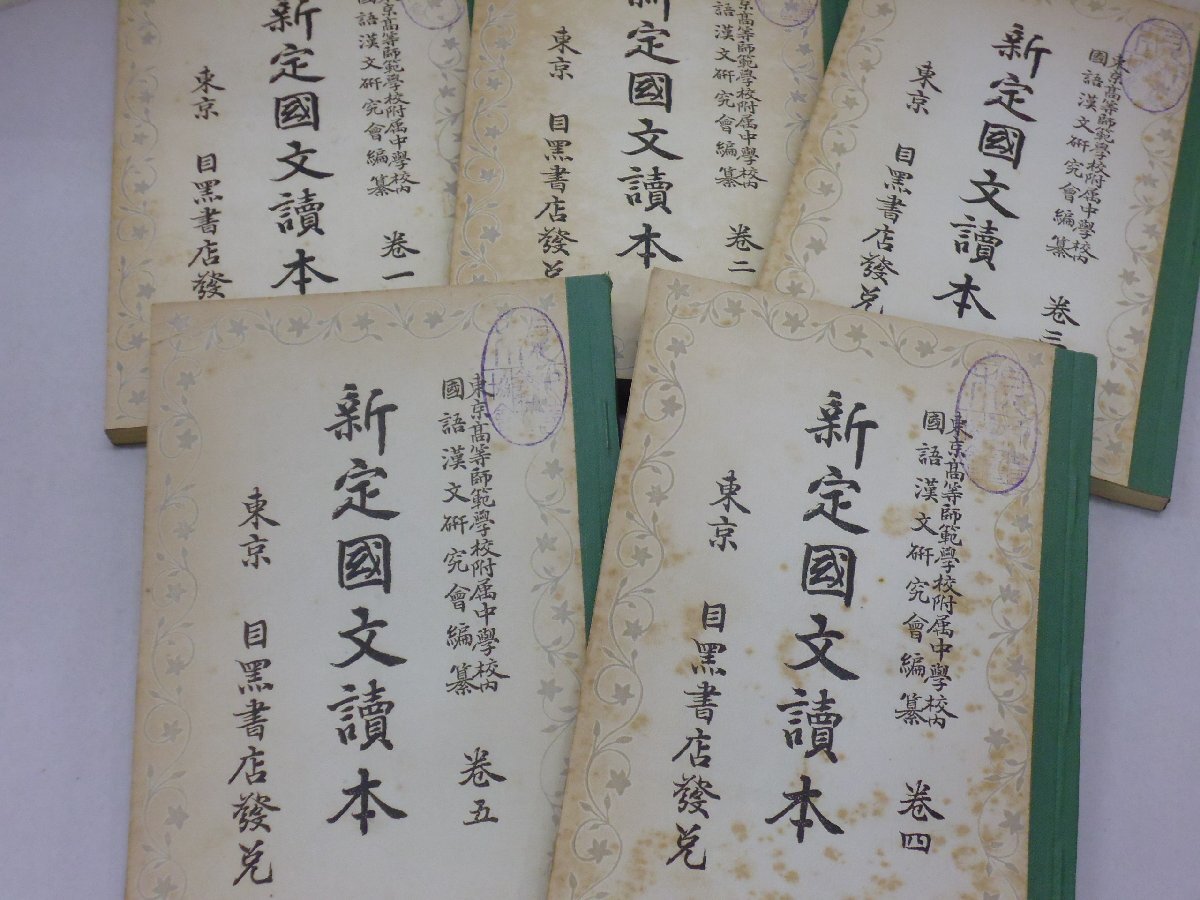 東京高等師範學校附属中學校内
國語漢文研究會編纂 卷一
新定國文讀本
東京 目黑書店發
東京高等師範學校附属中學校内
國語漢文研究會編纂 卷二
新定國文讀本
東京 目黑書店發兌
東京高等師範學校附属中學校内
國語漢文研究會編纂 卷三
新定國文讀本
東京 目黑書店發兌
東京高等師範學校附属中學校内
國語漢文研究會編纂 卷五
新定國文讀本
東京 目黑書店發兌
東京高等師範學校附属中學校内
國語漢文研究會編纂 卷四
新定國文讀本
東京 目黑書店發兌